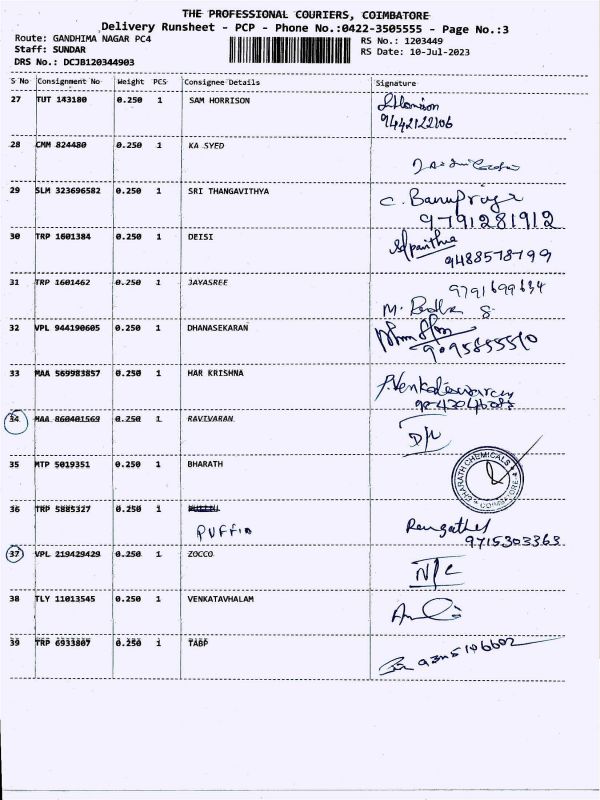 THE PROFESSIONAL COURIERS, COIMBATORE
Delivery Runsheet - PCP - Phone No.:0422-3505555 - Page No.:3
Route: GANDHIMA NAGAR PC4 RS No.: 1203449
Staff: SUNDAR RS Date: 10-Jul-2023
DRS No.: DCJB120344903
S No Consignment No Weight PCS Consignee Details Signature
27 TUT 143180 0.250 1 SAM HORRISON
9442122206
28 CMM 824480 0.250 1 KA SYED
29 SLM 323696582 0.250 1 SRI THANGAVITHYA C. Banupriya
9791281912
30 TRP 1601384 0.250 1 DEISI
9488578799
31 TRP 1601462 0.250 1 JAYASREE 9791699634
32 VPL 944190605 0.250 1 DHANASEKARAN
9095855510
33 MAA 569983857 0.250 1 HAR KRISHNA P. Venkateswaran
34 MAA 860401569 0.250 1 RAVIVARAN D/L
35 MTP 5019351 0.250 1 BHARATH BHARATH CHEMICALS COIMBATORE
36 TRP 5885327 0.250 1
PUFFIN
9715303363
37 VPL 219429429 0.250 1 ZOCCO N/C
38 TLY 11013545 0.250 1 VENKATAVHALAM
39 TRP 6933807 0.250 1 TABP